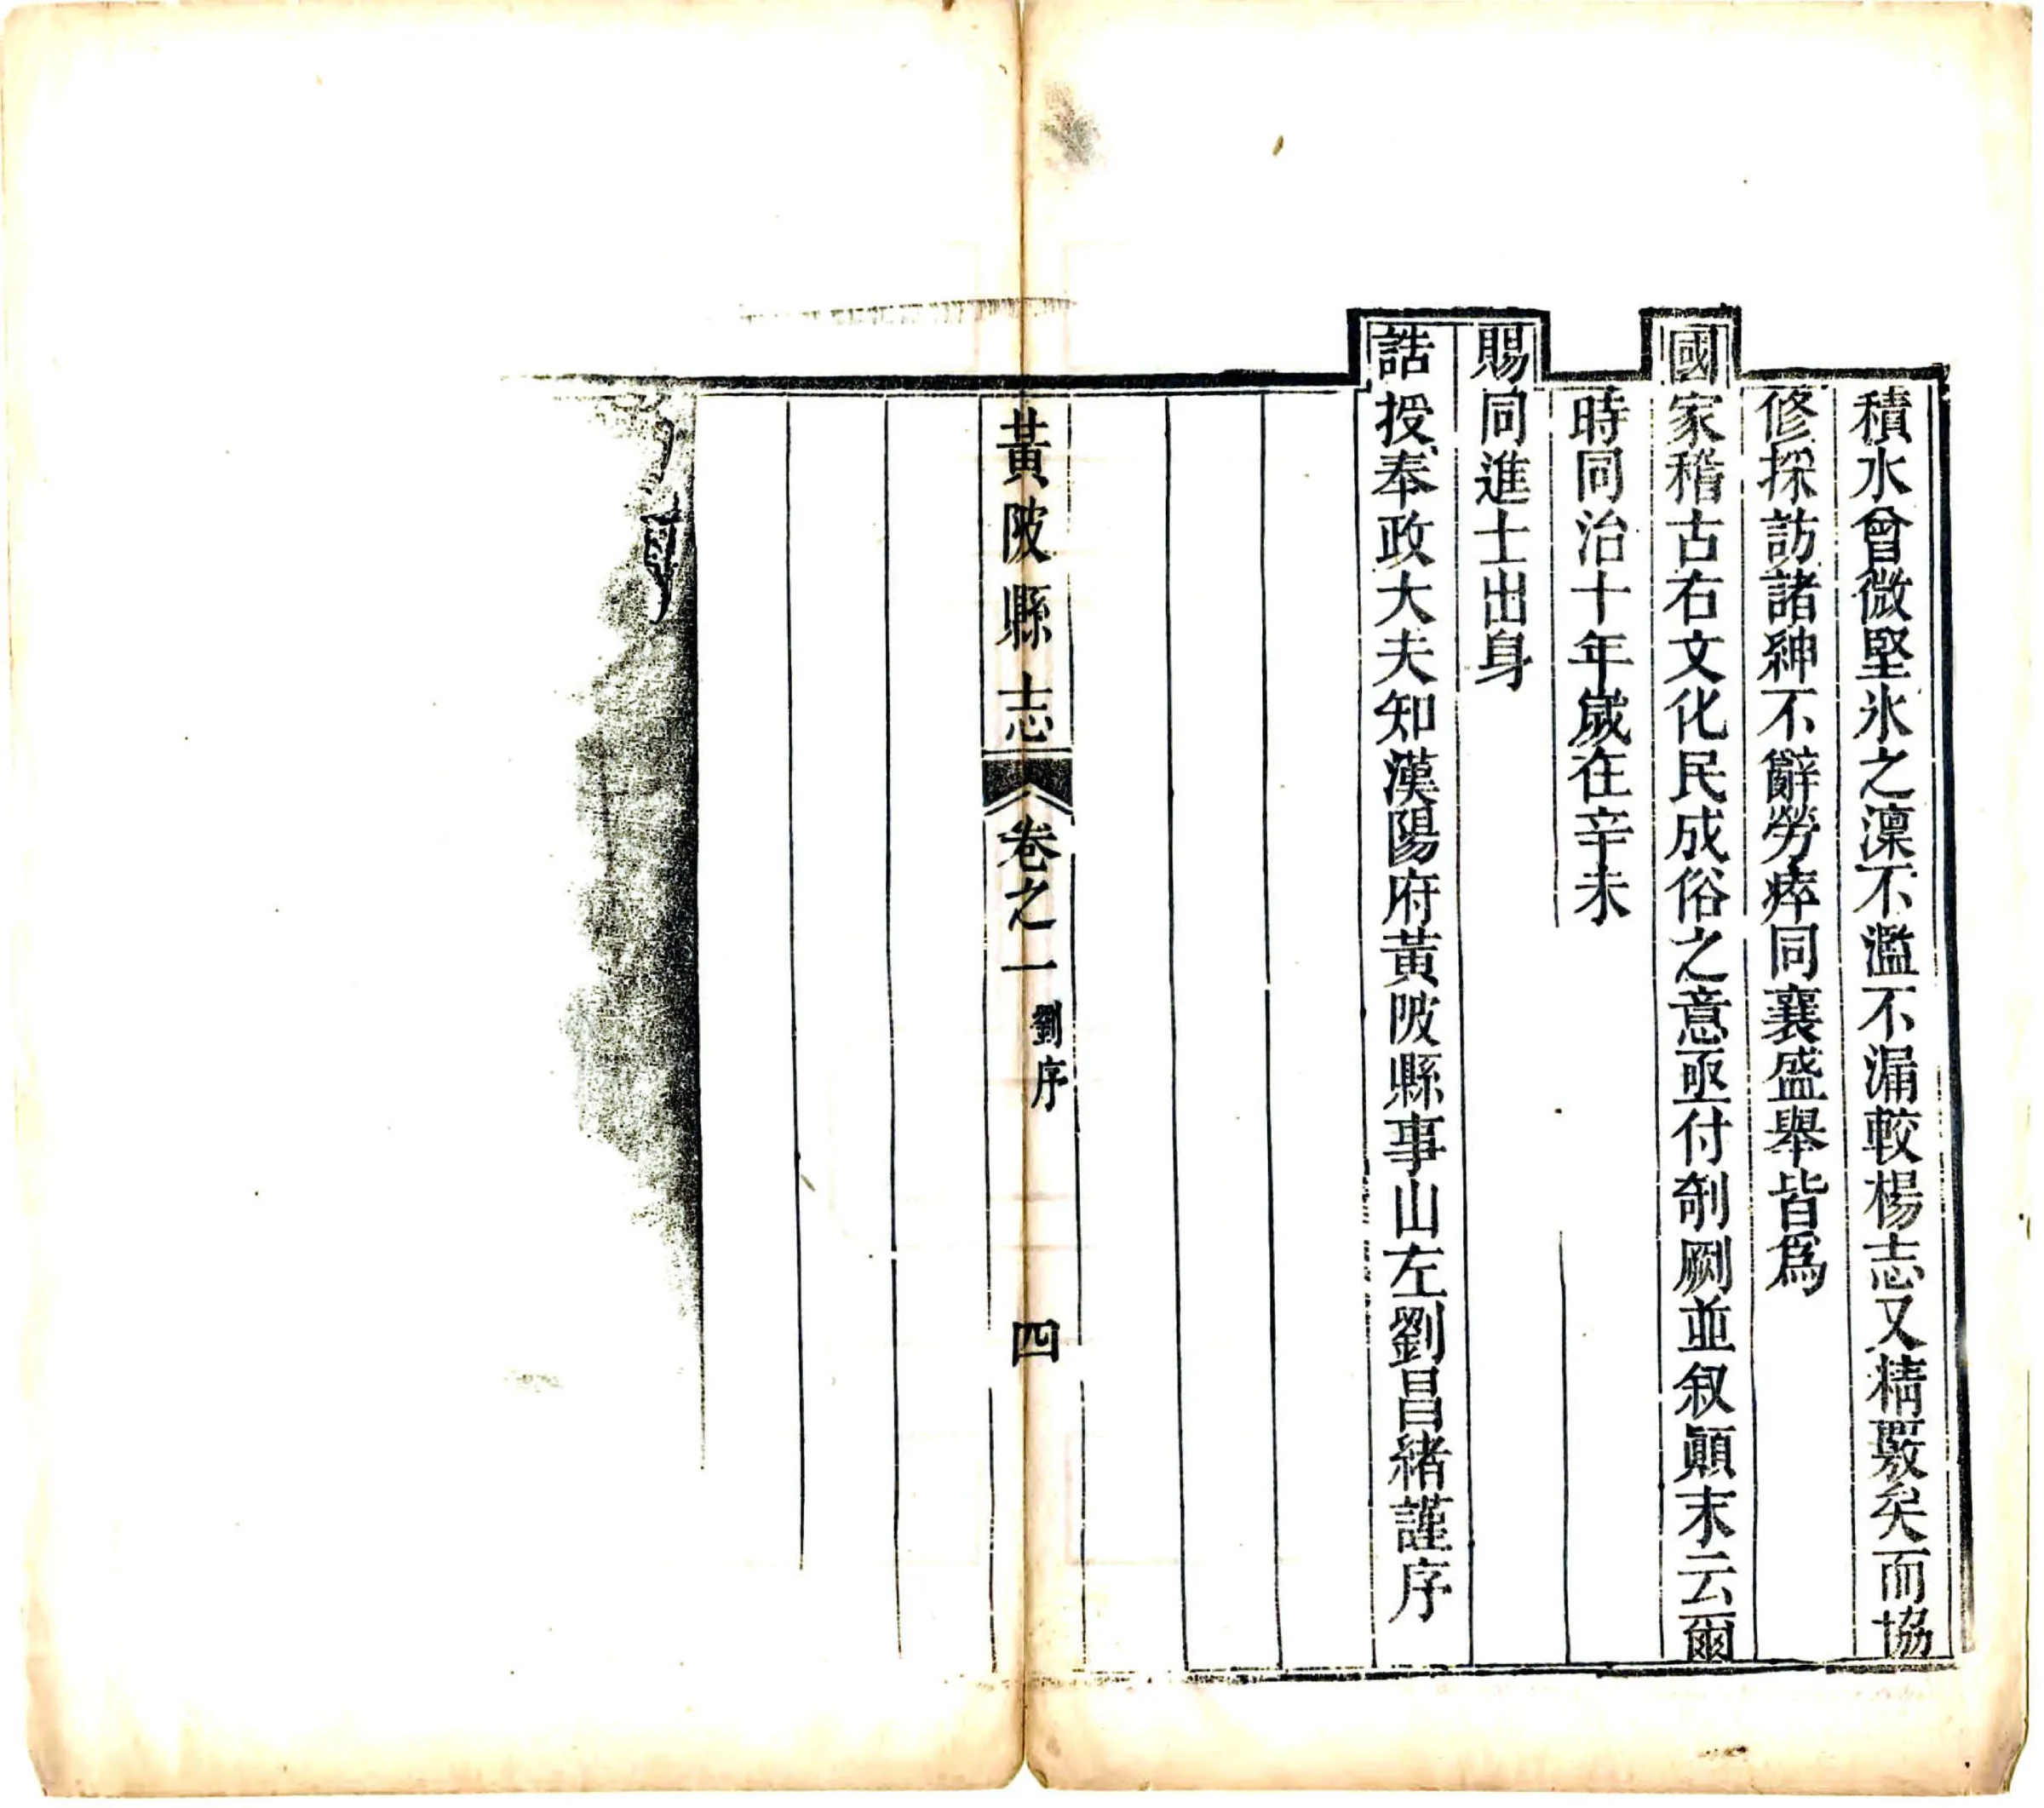 積水曾微堅氷之凜不濫不漏較楊志又精覈矣而協
修採訪諸紳不辭勞瘁同襄盛舉皆爲
國家稽古右文化民成俗之意亟付剞劂並叙顚末云爾
時同治十年歲在辛未
賜同進士出身
誥授奉政大夫知漢陽府黃陂縣事山左劉昌緖謹序
黃陂縣志
卷之一
劉序
四